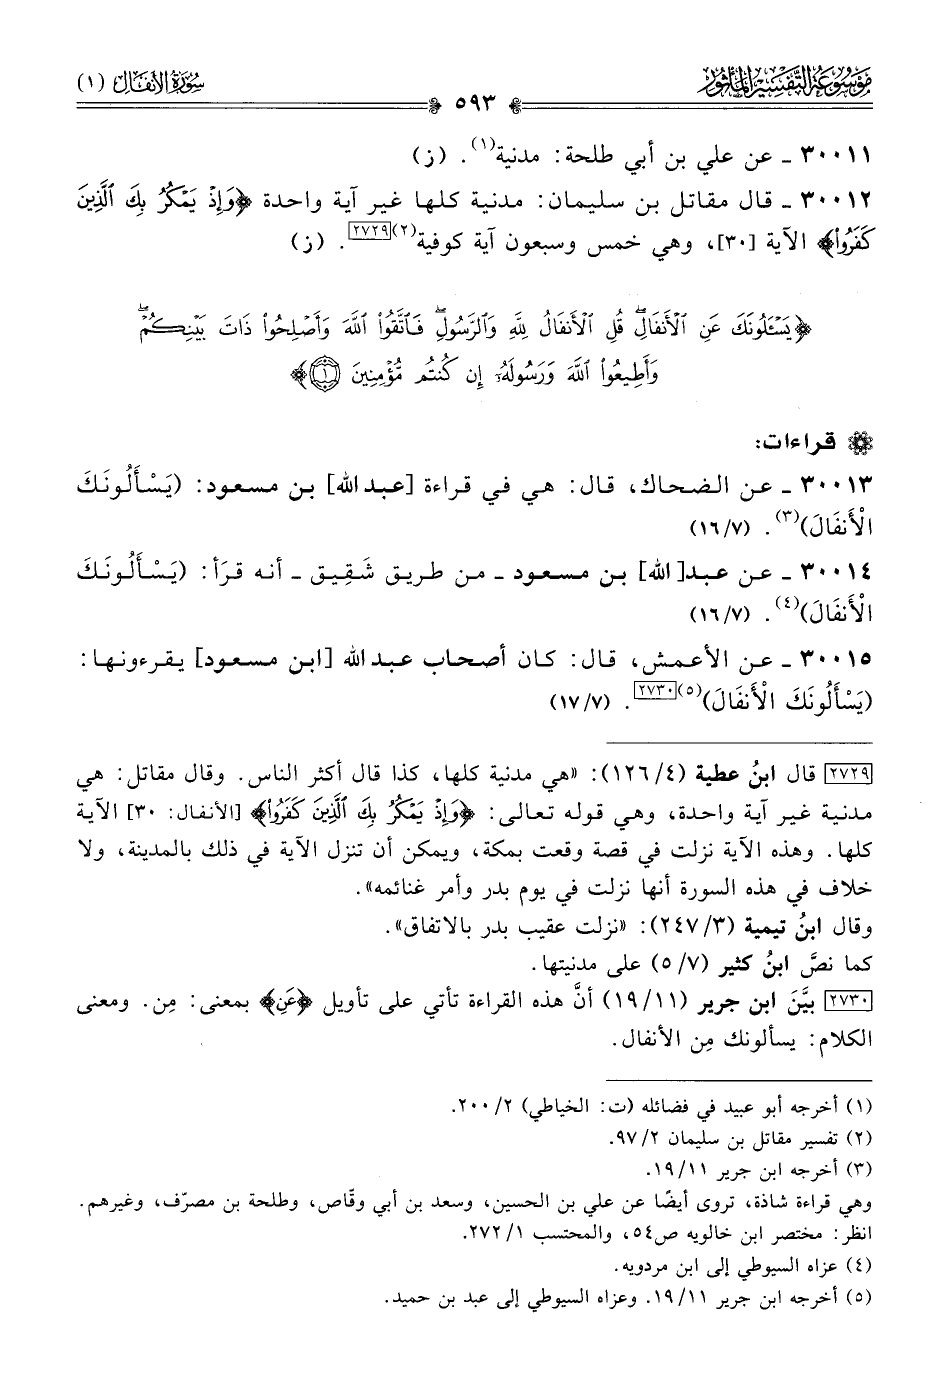 مَوْسُوعَةُ التَّفْسِيرِ المَأْثُور
٥٩٣
سُورَةُ الأَنفَال (١)
٣٠٠١١ ـ عن علي بن أبي طلحة: مدنية(١). (ز)
٣٠٠١٢ ـ قال مقاتل بن سليمان: مدنية كلها غير آية واحدة ﴿وَإِذْ يَمْكُرُ بِكَ ٱلَّذِينَ
كَفَرُوا۟﴾ الآية [٣٠]، وهي خمس وسبعون آية كوفية(٢)[٢٧٢٩]. (ز)
﴿يَسْـَٔلُونَكَ عَنِ ٱلْأَنفَالِۖ قُلِ ٱلْأَنفَالُ لِلَّهِ وَٱلرَّسُولِۖ فَٱتَّقُوا۟ ٱللَّهَ وَأَصْلِحُوا۟ ذَاتَ بَيْنِكُمْۖ
وَأَطِيعُوا۟ ٱللَّهَ وَرَسُولَهُۥٓ إِن كُنتُم مُّؤْمِنِينَ ١﴾
قراءات:
٣٠٠١٣ ـ عن الضحاك، قال: هي في قراءة [عبد الله] بن مسعود: (يَسْأَلُونَكَ
الْأَنفَالَ)(٣). (٧/ ١٦)
٣٠٠١٤ ـ عن عبد[ الله] بن مسعود ـ من طريق شَقِيق ـ أنه قرَأ: (يَسْأَلُونَكَ
الْأَنفَالَ)(٤). (٧/ ١٦)
٣٠٠١٥ ـ عن الأعمش، قال: كان أصحاب عبد الله [ابن مسعود] يقرءونها:
(يَسْأَلُونَكَ الْأَنفَالَ)(٥)[٢٧٣٠]. (٧/ ١٧)
[٢٧٢٩] قال ابنُ عطية (٤/ ١٢٦): «هي مدنية كلها، كذا قال أكثر الناس. وقال مقاتل: هي
مدنية غير آية واحدة، وهي قوله تعالى: ﴿وَإِذْ يَمْكُرُ بِكَ ٱلَّذِينَ كَفَرُوا۟﴾ [الأنفال: ٣٠] الآية
كلها. وهذه الآية نزلت في قصة وقعت بمكة، ويمكن أن تنزل الآية في ذلك بالمدينة، ولا
خلاف في هذه السورة أنها نزلت في يوم بدر وأمر غنائمه».
وقال ابنُ تيمية (٣/ ٢٤٧): «نزلت عقيب بدر بالاتفاق».
كما نصَّ ابنُ كثير (٧/ ٥) على مدنيتها.
[٢٧٣٠] بيَّنَ ابن جرير (١١/ ١٩) أنَّ هذه القراءة تأتي على تأويل ﴿عَنِ﴾ بمعنى: مِن. ومعنى
الكلام: يسألونك مِن الأنفال.
(١) أخرجه أبو عبيد في فضائله (ت: الخياطي) ٢/ ٢٠٠.
(٢) تفسير مقاتل بن سليمان ٢/ ٩٧.
(٣) أخرجه ابن جرير ١١/ ١٩.
وهي قراءة شاذة، تروى أيضًا عن علي بن الحسين، وسعد بن أبي وقّاص، وطلحة بن مصرّف، وغيرهم.
انظر: مختصر ابن خالويه ص٥٤، والمحتسب ١/ ٢٧٢.
(٤) عزاه السيوطي إلى ابن مردويه.
(٥) أخرجه ابن جرير ١١/ ١٩. وعزاه السيوطي إلى عبد بن حميد.